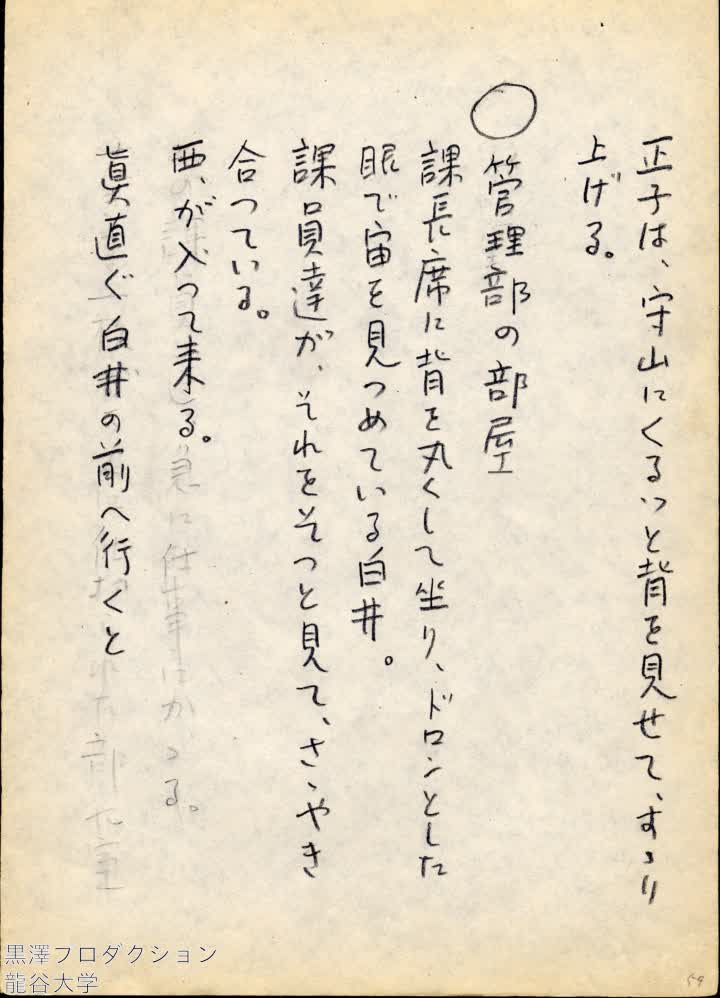 正子は、守山にくるっと背を見せて、すゝり
上げる。
○管理部の部屋
課長席に背を丸くして坐り、ドロンとした
眼で宙を見つめている白井。
課員達が、それをそつと見て、さゝやき
合つている。
西、が入つて来る。
眞直ぐ白井の前へ行くと
黒澤プロダクション
龍谷大学
59